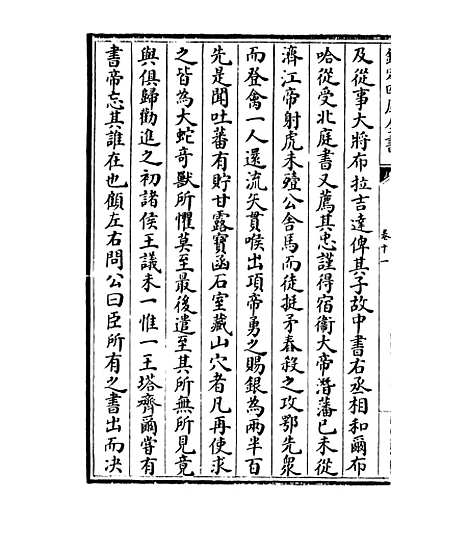 欽定四庫全書
卷十一
及從事大將布拉吉達俾其子故中書右丞相和爾布
哈從受北庭書又薦其忠謹得宿衛大帝潛藩己未從
濟江帝射虎未殪公舍馬而徒挺矛舂殺之攻鄂先衆
而登禽一人還流矢貫喉出項帝勇之賜銀為兩半百
先是聞吐蕃有貯甘露寶函石室藏山穴者凡再使求
之皆為大蛇奇獸所懼莫至最後遣至其所無所見竟
與俱歸勸進之初諸侯王議未一惟一王塔齊爾嘗有
書帝忘其誰在也顧左右問公曰臣所有之書出而决